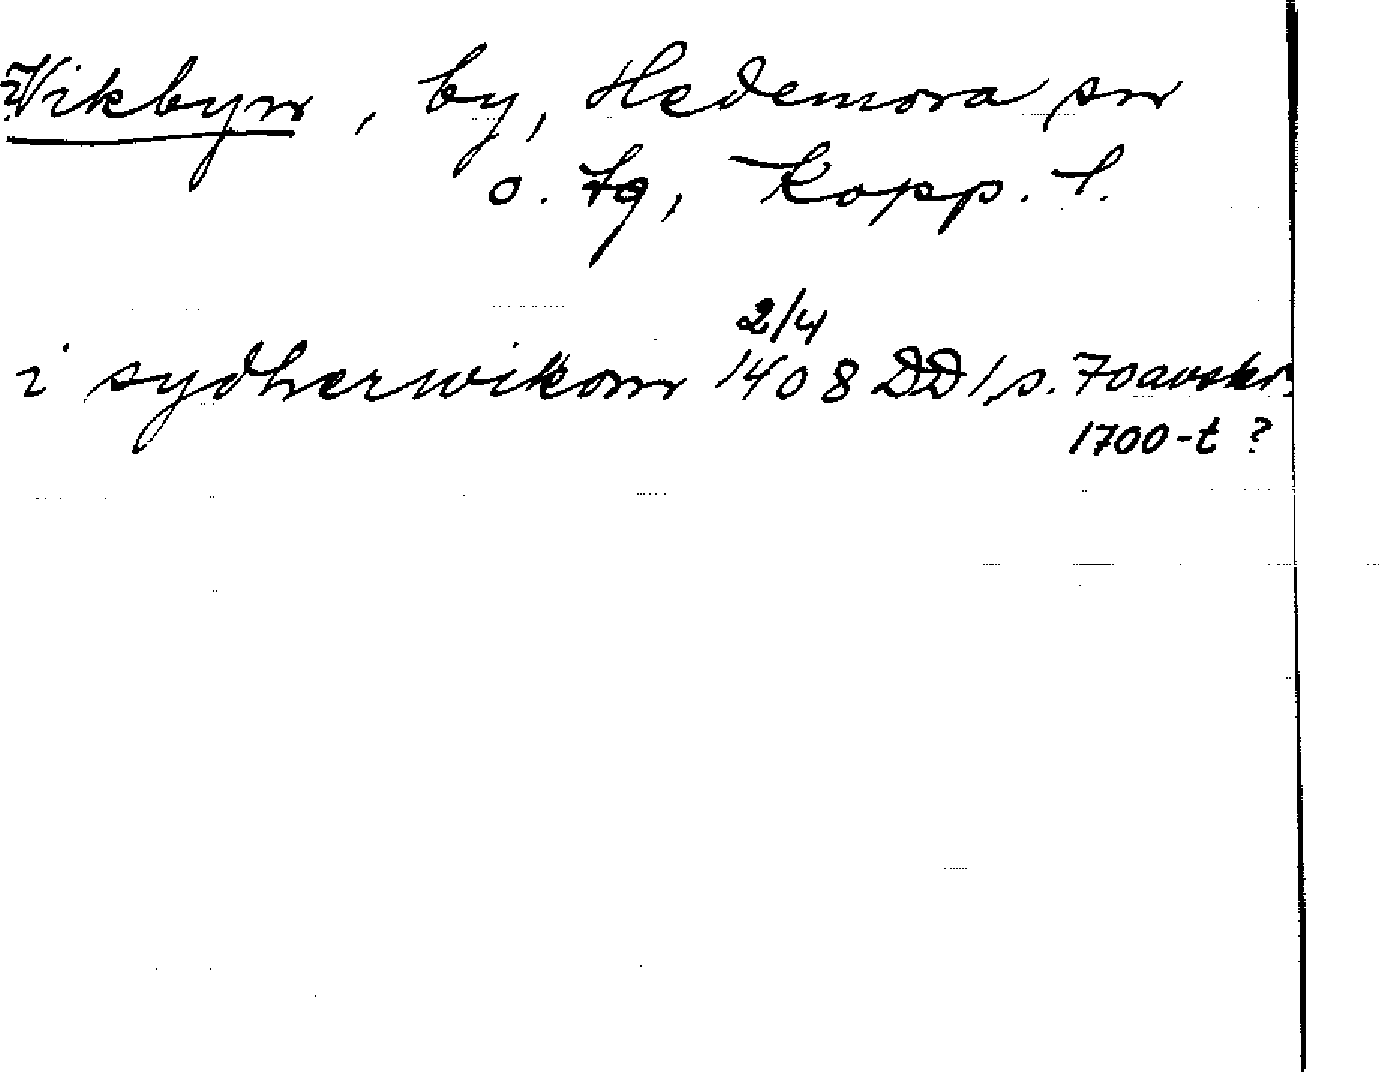 ?Vikbyn, by, Hedemora sn
o. tg, Kopp. l.
2/4
i sydherwikom 1408 DD 1, s. 70 avskr.
1700-t ?